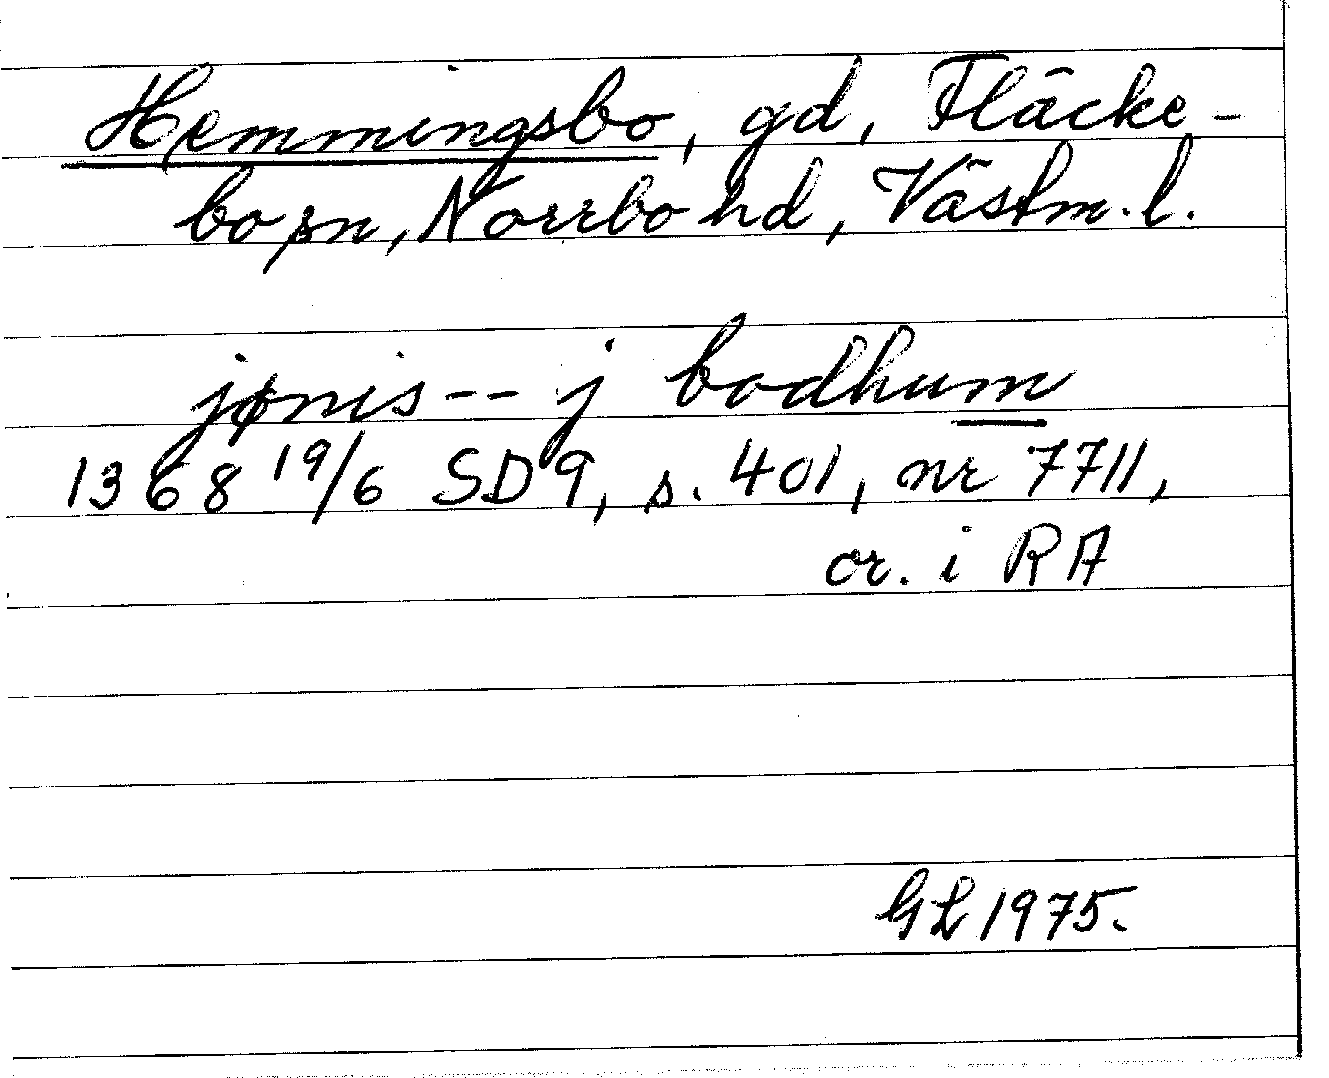 Hemmingsbo, gd, Fläcke-
bo sn, Norrbo hd, Västm. l.
jønis -- j bodhum
1368 19/6 SD 9, s. 401, nr 7711,
or. i RA
GL 1975.